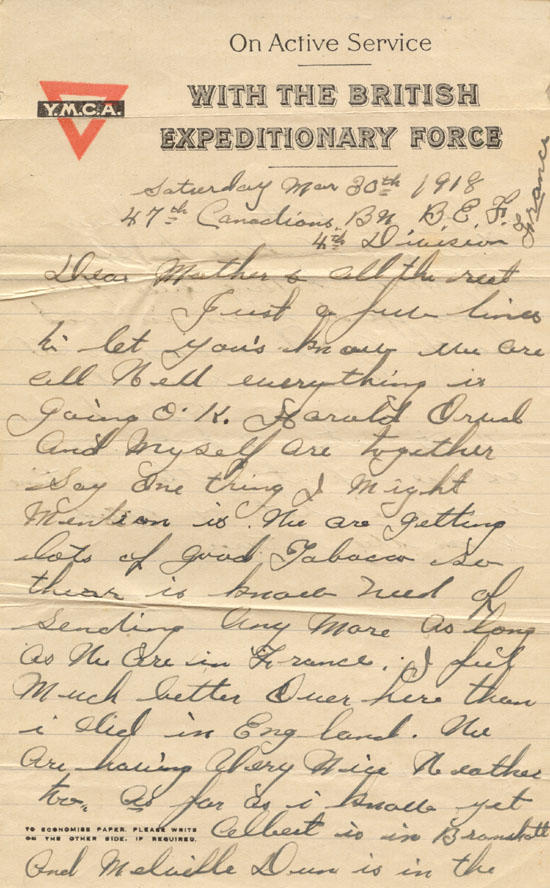 On Active Service
WITH THE BRITISH
EXPEDITIONARY FORCE
Y.M.C.A.
Saturday Mar 30th 1918
47th Canadians, BN B. E. F. France
4th Division
Dear Mother & all the rest
Just a few lines
to let you's know we are
all Well everything is
Going O. K. Harold Orval
and Myself are together
Say one thing I Might
Mention is. We are getting
lots of good Tobacco so
thear is knowe need of
sending Any More as long
as We are in France. I feel
Much better Over here than
i did in England. We
Are having Very Nice Weather
too. As far as i know yet
TO ECONOMISE PAPER, PLEASE WRITE
ON THE OTHER SIDE, IF REQUIRED.
Albert is in Bramshott
And Melville Dun is in the